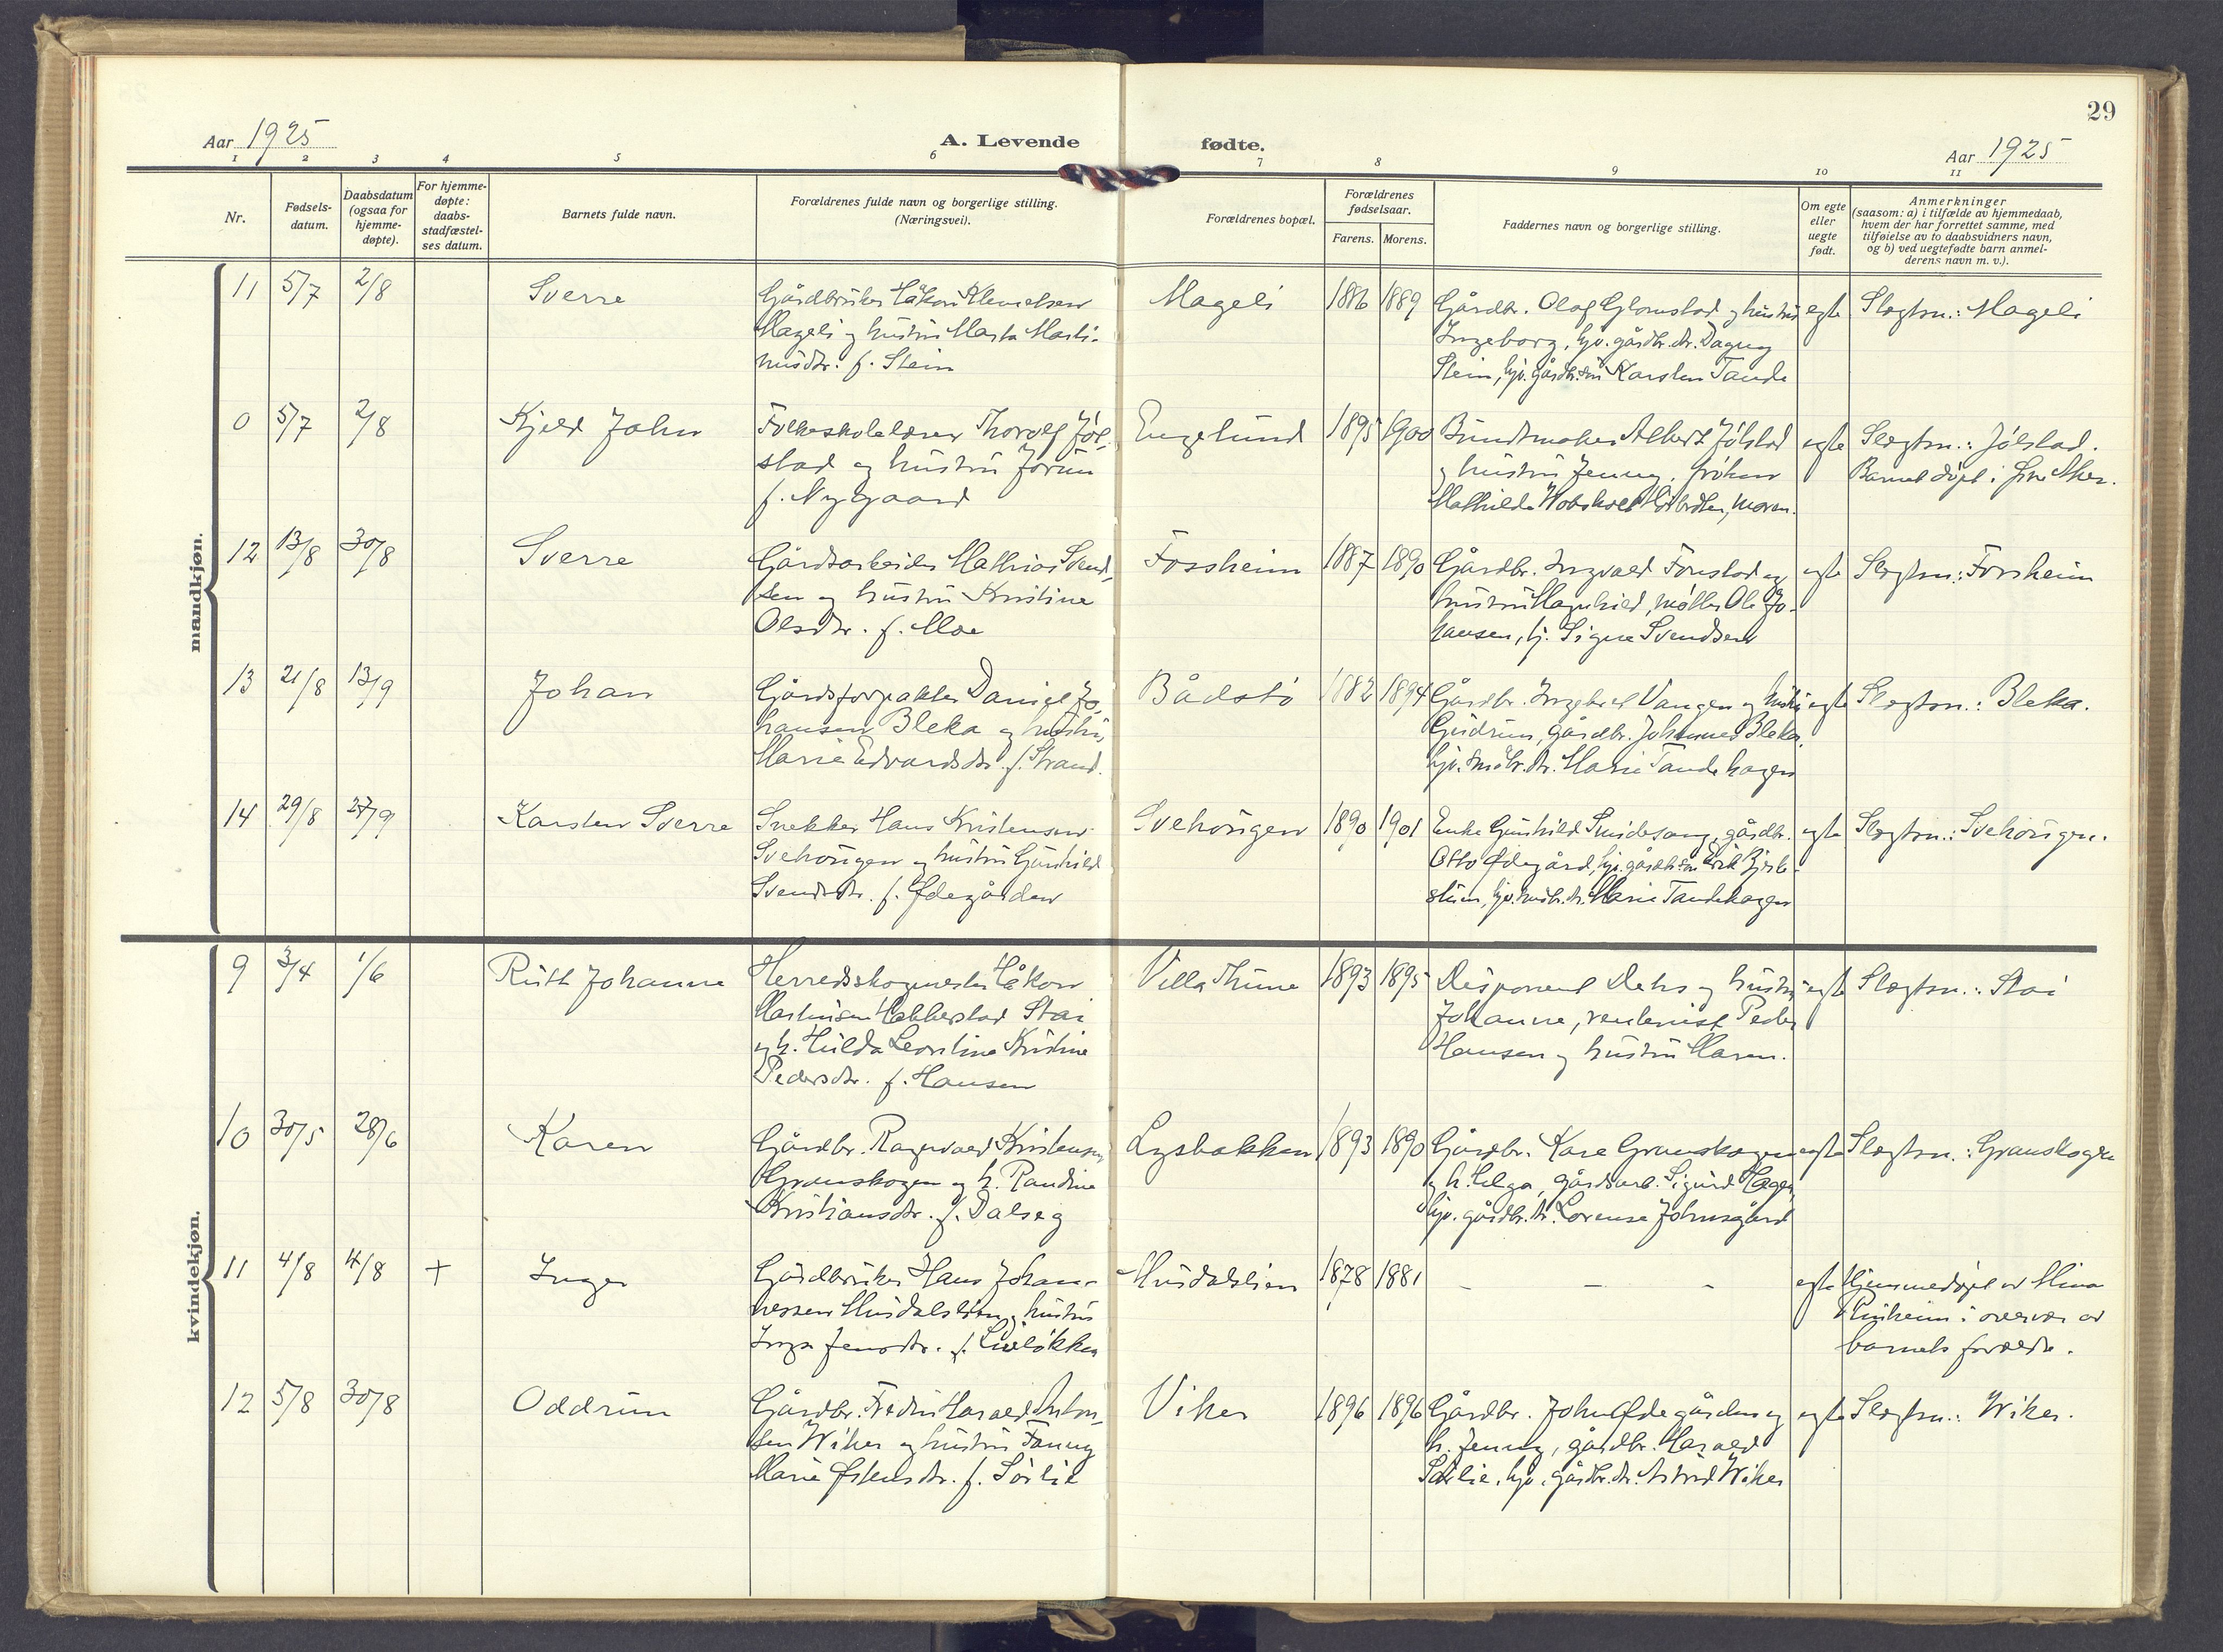 29
Aar 1925
A. Levende
fødte.
Aar 1925
1 2 3 4 5 6 7 8 9 10 11
Nr.
Fødsels-
datum.
Daabsdatum
(ogsaa for
hjemme-
døpte).
For hjemme-
døpte:
daabs-
stadfæstel-
ses datum.
Barnets fulde navn.
Forældrenes fulde navn og borgerlige stilling.
(Næringsvei).
Forældrenes bopæl.
Forældrenes
fødselsaar.
Farens. Morens.
Faddernes navn og borgerlige stilling.
Om egte
eller
uegte
født.
Anmerkninger
(saasom: a) i tilfælde av hjemmedaab,
hvem der har forrettet samme, med
tilføielse av to daabsvidners navn,
og b) ved uegtefødte barn anmel-
derens navn m. v.).
mandkjøn.
11 5/7 2/8 Sverre
Gårdbruker Håkon Klemetsen
Mageli og hustru Marta Marti-
nusdtr. f. Stein
Mageli 1886 1889
Gårdbr. Olaf Glomstad og hustru
Ingeborg, hjv. gårdbr.dr. Dagny
Stein, hjv. gårdbr.søn Karsten Tande
egte Slegtsn.: Mageli
0 5/7 2/8 Kjeld John
Folkeskolelærer Thorolf Jøl-
stad og hustru Jorun
f. Nygaard
Engelund 1895 1900
Buntmaker Albert Jølstad
og hustru Jenny, frøken
Mathilde moren.
egte Slegtsn.: Jølstad.
Barnet døpt i Aker.
12 13/8 30/8 Sverre
Gårdsarbeider Mathias Svend-
sen og hustru Kristine
Olsdtr. f. Moe
Fossheim 1887 1890
Gårdbr. Ingvald Fonstad og
hustru Magnhild, møller Ole Jo-
hansen, hj. Signe Svendsen
egte Slegtsn.: Fossheim
13 21/8 13/9 Johan
Gårdsforpakter Daniel Jo-
hansen Bleka og hustru
Marie Edvardsdtr. f. Strand.
Bådstø 1882 1894
Gårdbr. Ingebret Vangen og hustru
Gudrun, gårdbr. Johannes Bleka,
hjv. småbr.dr. Marie Tandehagen
egte Slegtsn.: Bleka.
14 29/8 27/9 Karsten Sverre
Snekker Hans Kristensen
Svehaugen og hustru Gunhild
Svendsdtr. f. Ødegården
Svehaugen 1890 1901
Enke Gunhild Smidesang, gårdbr.
Otto Ødegård, hjv. gårdbr.søn Erik
hjv. småbr.dr. Marie Tandehagen
egte Slegtsn.: Svehaugen.
kvindekjøn.
9 3/4 1/6 Ruth Johanne
Herredsskogmester Håkon
Martinsen Habberstad Stai
og h. Hilda Leontine Kristine
Pedersdtr. f. Hansen
Villa Thune 1893 1895
Disponent Dehs og hustru
Johanne, rentenist Peder
Hansen og hustru Maren.
egte Slegtsn.: Stai
10 30/5 28/6 Karen
Gårdbr. Ragnvald Kristensen
Granskogen og h. Randine
Kristiansdtr. f. Dalseg
Lysbakken 1893 1890
Gårdbr. Kare Granskogen
og h. Helga, gårdsarb. Sigurd Hagen,
hjv. gårdbr.dr. Lorense Johnsgård
egte Slegtsn.: Granskogen
11 4/8 4/8 + Inger
Gårdbruker Hans Johan-
nessen Musdalslien og hustru
Inga Jensdtr. f. Lieløkken
Musdalslien 1878 1881
- - -
egte Hjemmedøpt av Mina
i overvær av
barnets forældre.
12 5/8 30/8 Oddrun
Gårdbr. Fredrik Harald Anton-
sen Wiker og hustru Fanny
Marie Østensdtr. f. Sørlie
Viker 1896 1896
Gårdbr. John Ødegården og
h. Jenny, gårdbr. Harald
Sørlie, hjv. gårdbr.dr. Astrid Wiker
egte Slegtsn.: Wiker.